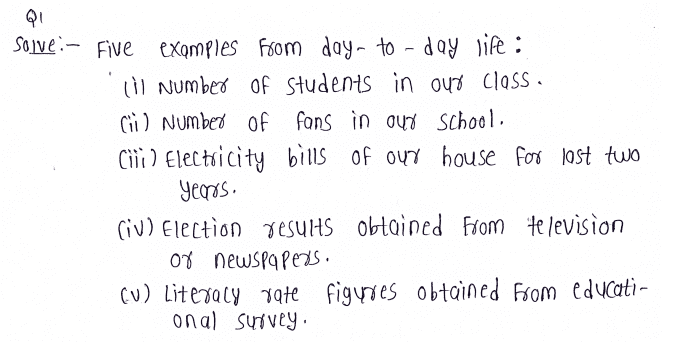 Q1
Solve:- Five examples from day-to-day life:
(i) Number of students in our class.
(ii) Number of fans in our school.
(iii) Electricity bills of our house for last two
years.
(iv) Election results obtained from television
or newspapers.
(v) Literacy rate figures obtained from educati-
onal survey.